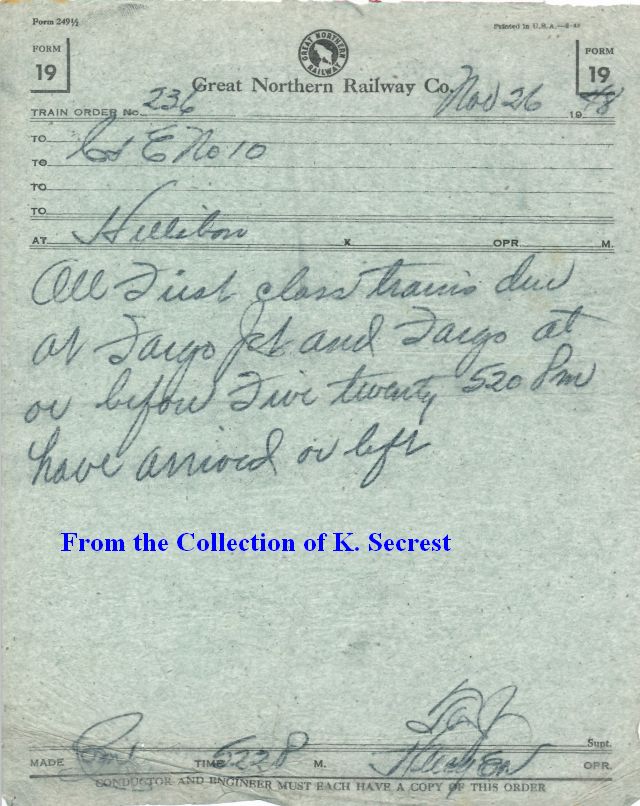 Form 249½
Printed in U.S.A.
FORM
19
GREAT NORTHERN RAILWAY
FORM
19
Great Northern Railway Co.
Nov 26 1948
TRAIN ORDER No. 236
TO C&E No 10
TO
TO
TO
AT Hillsboro X OPR. M.
All First class trains due
at Fargo Jct and Fargo at
or before Five twenty 520 Pm
have arrived or left
From the Collection of K. Secrest
Supt.
MADE Com TIME 522 P M. OPR.
CONDUCTOR AND ENGINEER MUST EACH HAVE A COPY OF THIS ORDER